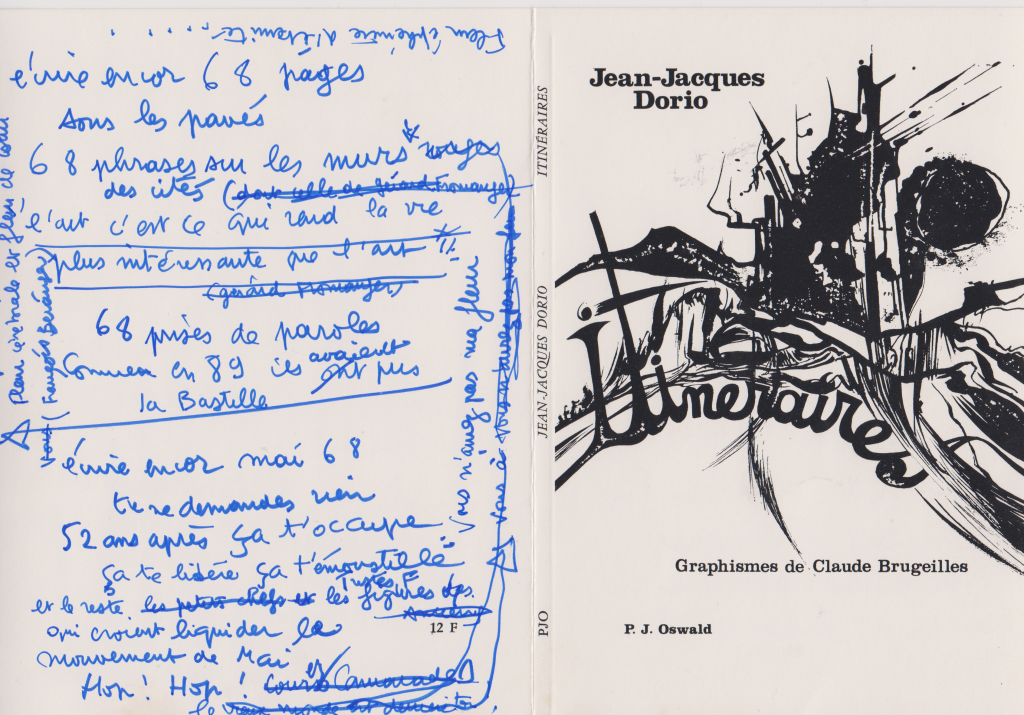 Fleur éphémère d'éternité.....
écrire encor 68 pages
sous les pavés
68 phrases sur les murs rouges
des cités (dont celle de Gérard Fromanger
l'art c'est ce qui rend la vie
plus intéressante que l'art !!
(Gérard Fromanger)
68 prises de paroles
Comme en 89 ils avaient
ont pris
la Bastille
écrire encor mai 68
tu ne demandes rien
52 ans après ça t'occupe
ça te libère ça t'émoustille
et le reste les petits chefs et les Tristes figures des
qui croient liquider le
mouvement de Mai
Hop! Hop! Cours Camarade
le vieux monde est derrière
et fleur de
(François Béranger)
vous n'aimez pas ma fleur
vous à
12 F
ITINÉRAIRES
JEAN-JACQUES DORIO
PJO
Jean-Jacques
Dorio
Itinéraires
Graphismes de Claude Brugeilles
P. J. Oswald